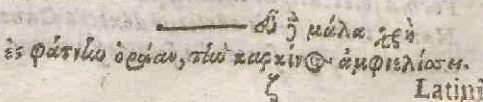 εὖ δὲ μάλα χρὴ
ἐς φάτνην ὁράαν, τὴν καρκίνος ἀμφιελίσσει.
ζ Latini